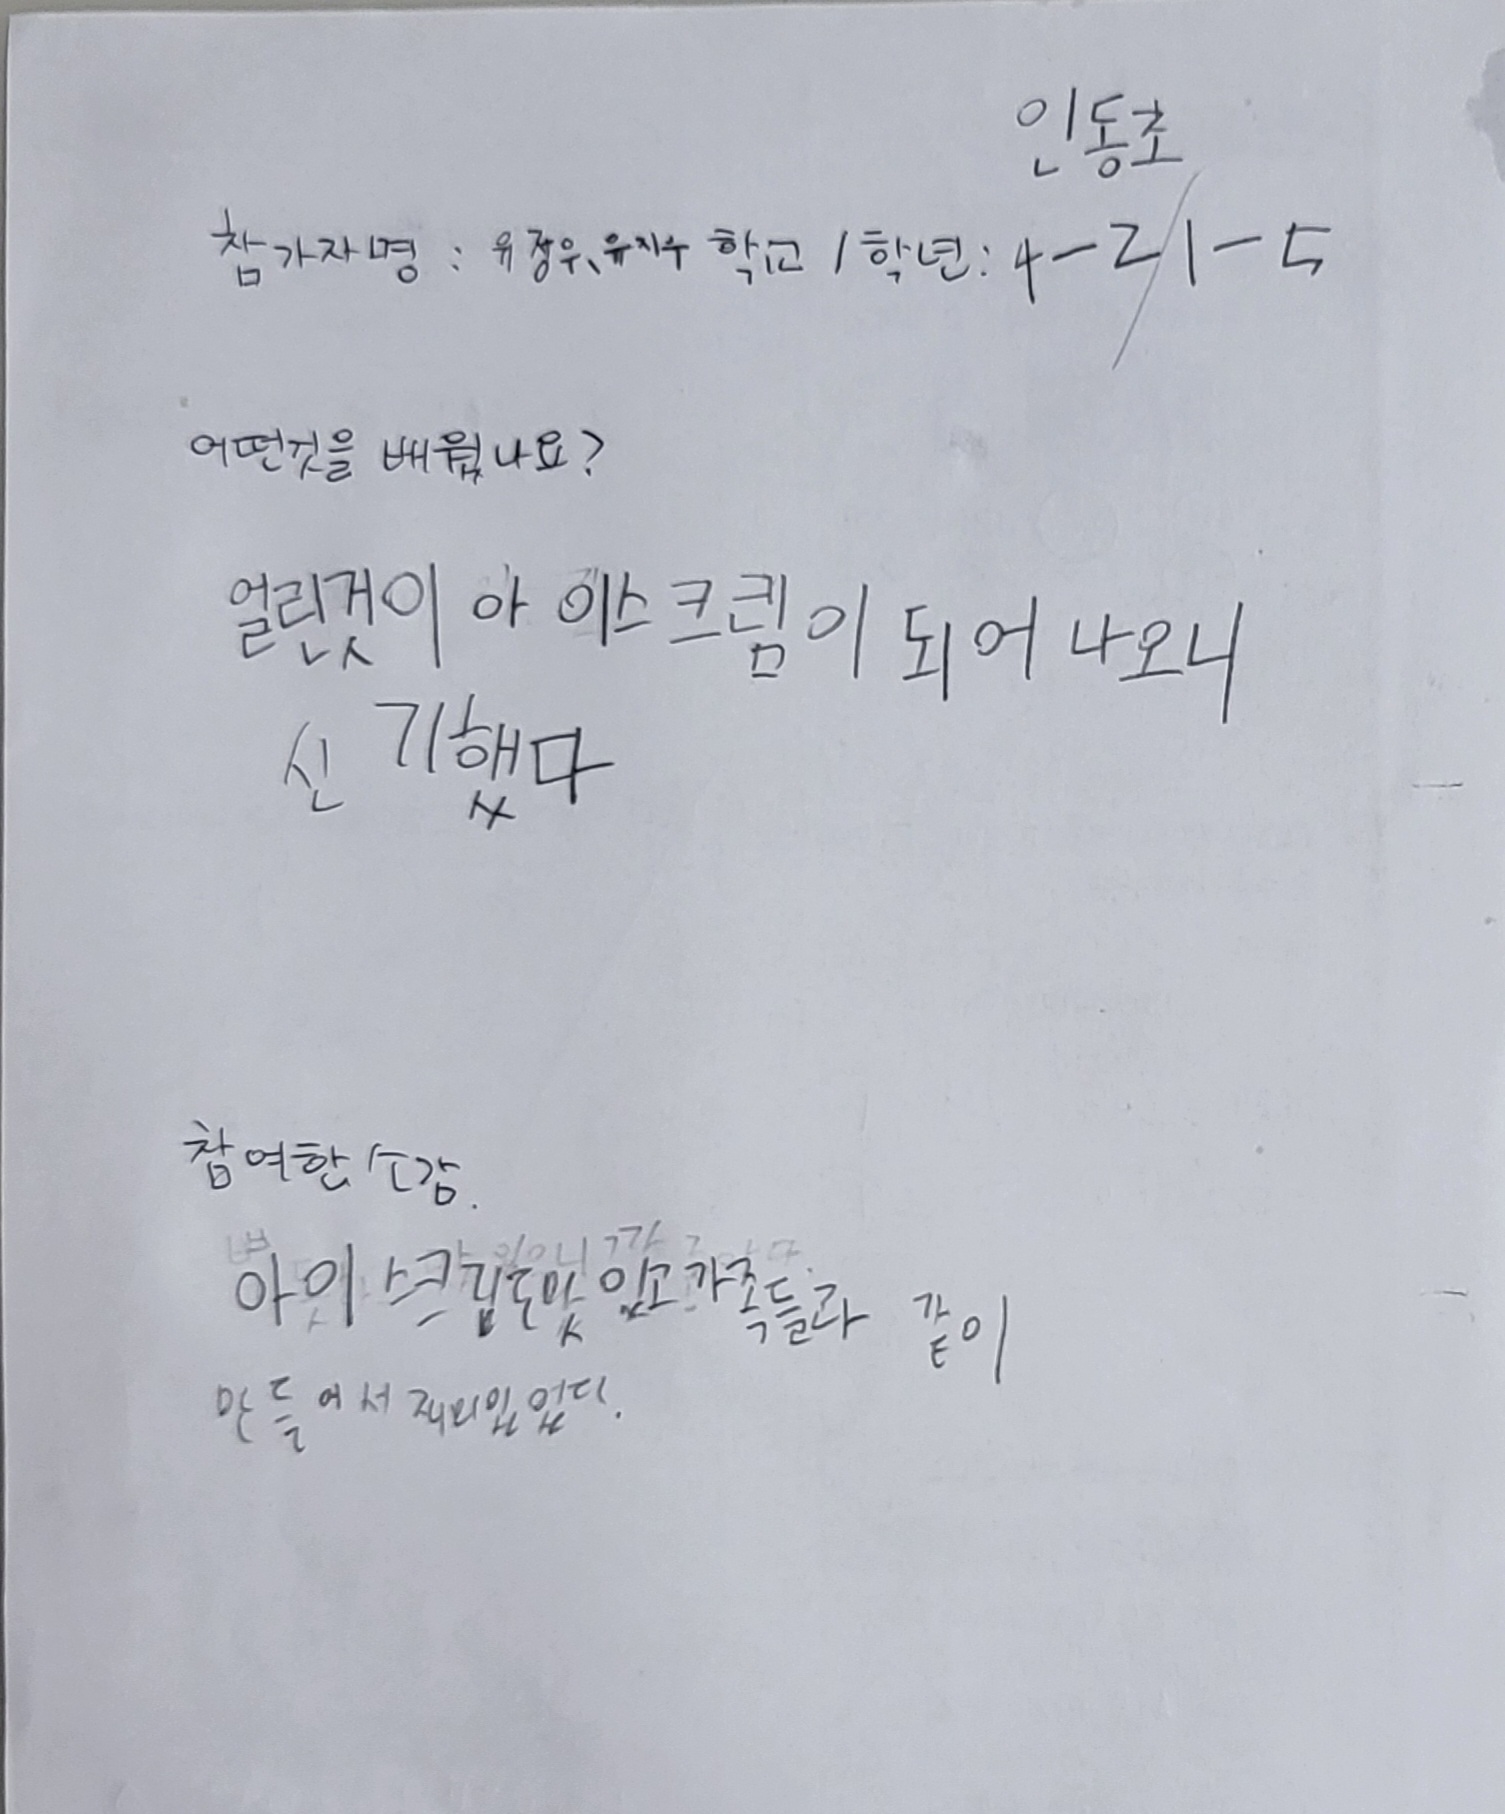 인동초
참가자명 : 유장우, 유지수 학교 / 학년 : 4-2 / 1-5
어떤것을 배웠나요?
얼린것이 아이스크림이 되어 나오니
신기했다
참여한 소감.
아이스크림도 맛있고 가족들과 같이
만들어서 재미있었다.